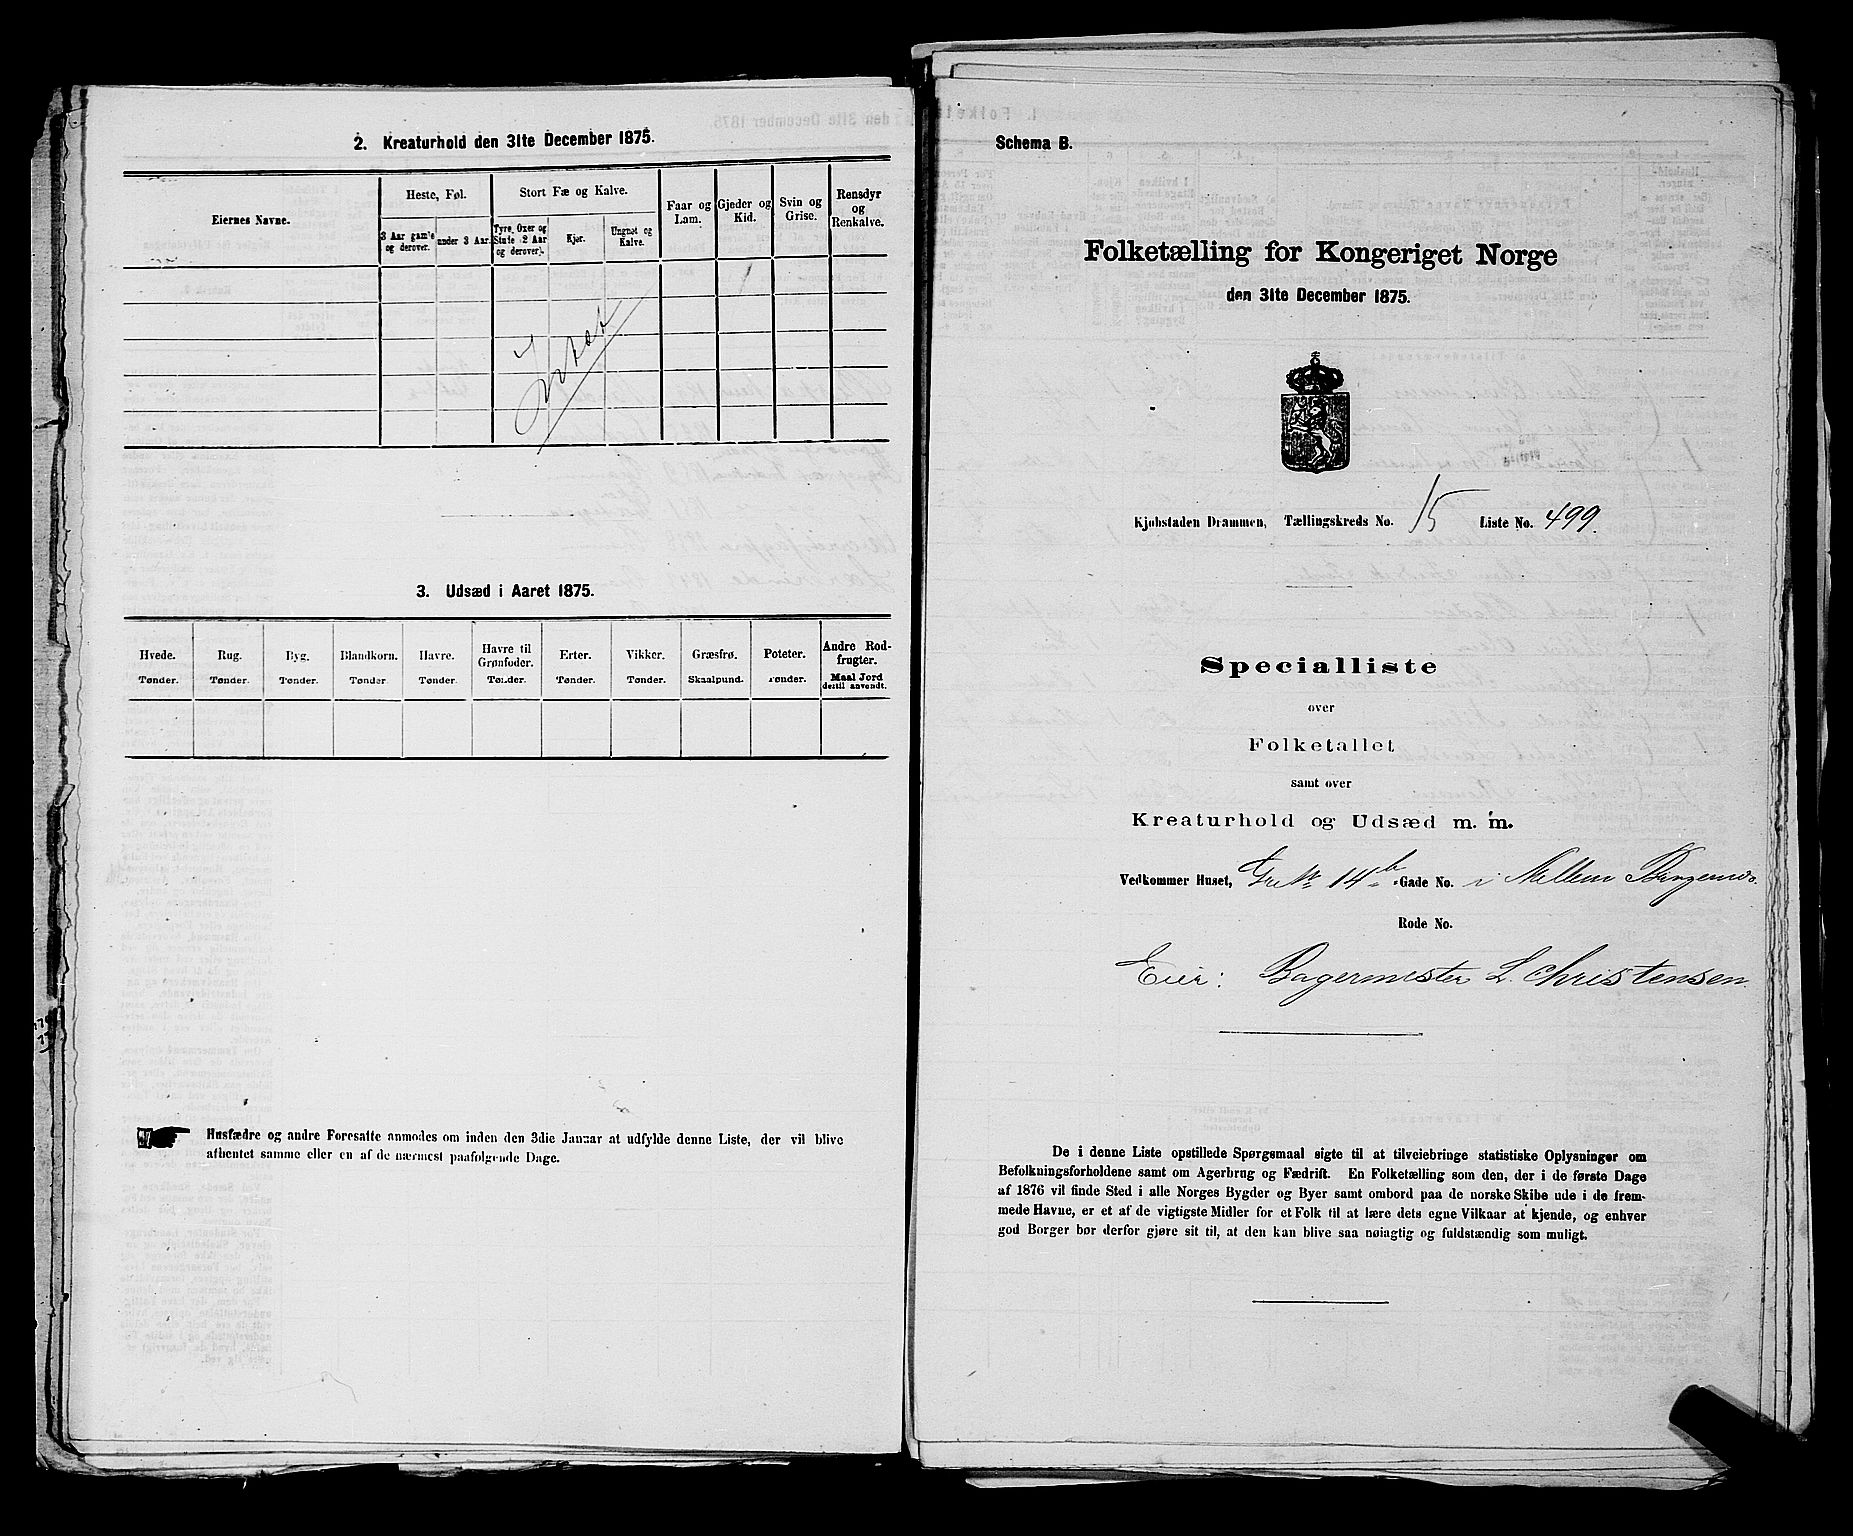 2. Kreaturhold den 31te December 1875.
Eiernes Navne.
Heste, Føl.
Stort Fæ og Kalve.
Faar og Lam.
Gjeder og Kid.
Svin og Grise.
Rensdyr og Renkalve.
3 Aar gam'e og derover.
under 3 Aar.
Tyre, Oxer og Stute (2 Aar og derover).
Kjør.
Ungnøt og Kalve.
3. Udsæd i Aaret 1875.
Hvede. Rug. Byg. Blandkorn. Havre. Havre til Grønfoder. Erter. Vikker. Græsfrø. Poteter. Andre Rodfrugter.
Tønder. Tønder. Tønder. Tønder. Tønder. Tønder. Tønder. Tønder. Skaalpund. Tønder. Maal Jord dertil anvendt.
Husfædre og andre Foresatte anmodes om inden den 3die Januar at udfylde denne Liste, der vil blive
afhentet samme eller en af de nærmest paafølgende Dage.
Schema B.
Folketælling for Kongeriget Norge
den 31te December 1875.
Kjøbstaden Drammen, Tællingskreds No. 15 Liste No. 499.
Specialliste
over
Folketallet
samt over
Kreaturhold og Udsæd m. m.
Vedkommer Huset, 14 b Gade No. i Mellem Bragernæs.
Rode No.
Eier: Bagermester L. Christensen.
De i denne Liste opstillede Spørgsmaal sigte til at tilveiebringe statistiske Oplysninger om
Befolkningsforholdene samt om Agerbrug og Fædrift. En Folketælling som den, der i de første Dage
af 1876 vil finde Sted i alle Norges Bygder og Byer samt ombord paa de norske Skibe ude i de frem-
mede Havne, er et af de vigtigste Midler for et Folk til at lære dets egne Vilkaar at kjende, og enhver
god Borger bør derfor gjøre sit til, at den kan blive saa nøiagtig og fuldstændig som muligt.